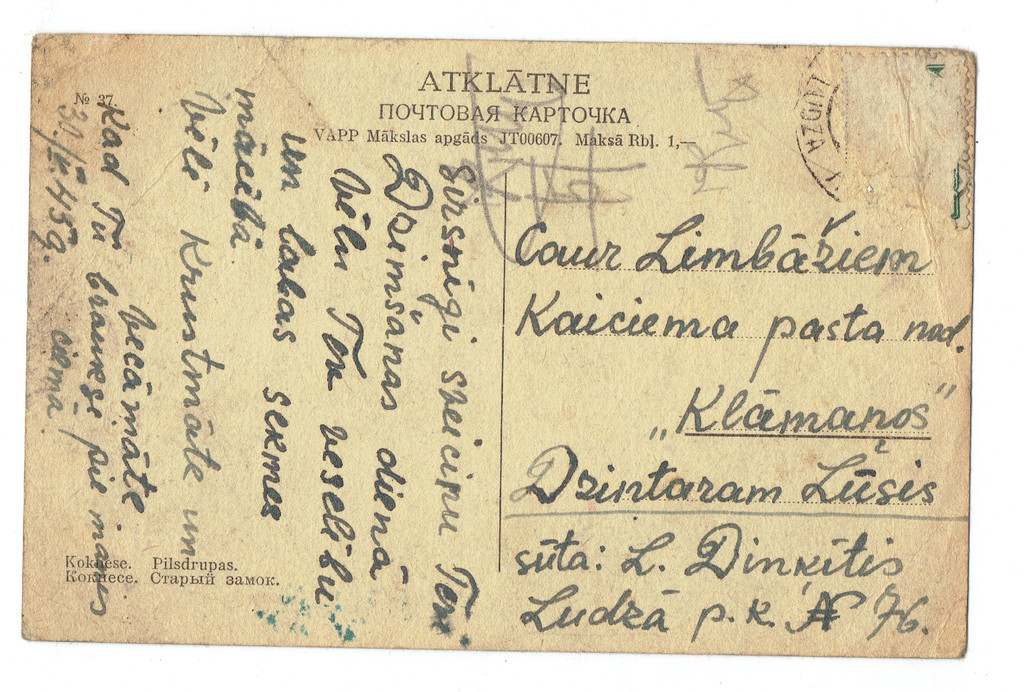 ATKLĀTNE
ПОЧТОВАЯ КАРТОЧКА
VAPP Mākslas apgāds JT00607. Maksā Rbļ. 1,—
№ 37
LUDZA
Sirsnīgi sveicinu Tev
Dzimšanas dienā
vēlu Tev veselību
un labas sekmes
mācībā.
vēlē Krustmāte un
vecāmāte
Kad Tu brauksi pie manis
ciema
30/IX.45g.
Caur Limbāžiem
Kaiciema pasta nod.
„Klāmaņos"
Dzintaram Lūšis
sūta: L. Dinkītis
Ludzā p.k. № 76.
Koknese. Pilsdrupas.
Кокнесе. Старый замок.